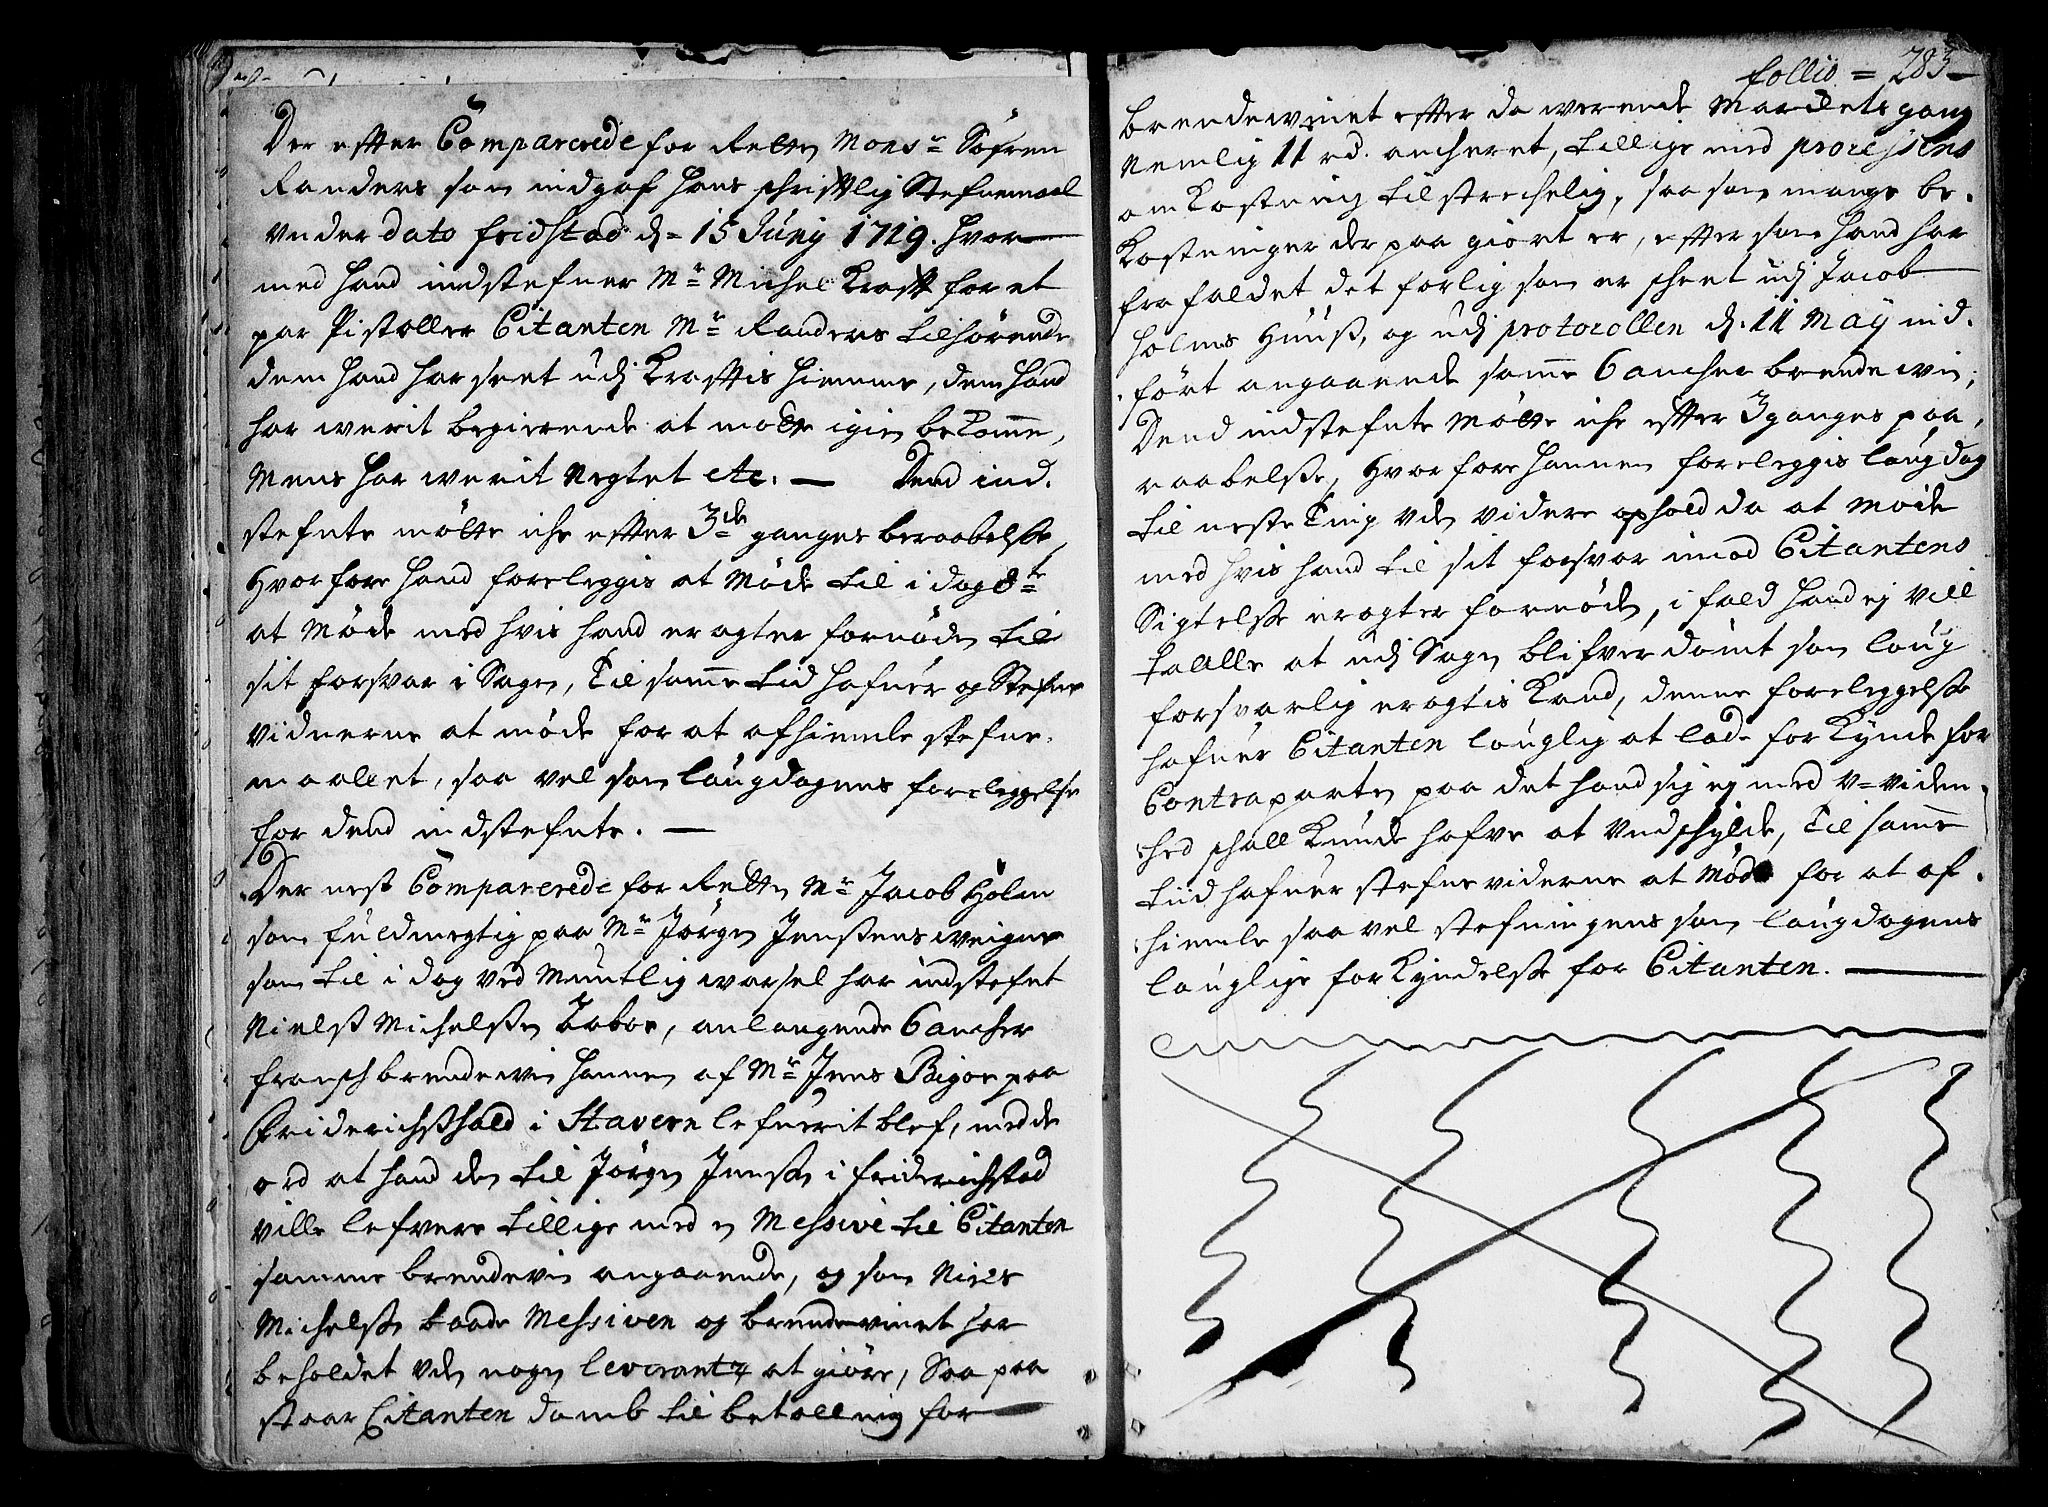 Der effter Comparerede for Retten Mons:r Söfren
Randers som indgaf hans schrifftlig Stefnemaal
under dato fridstad d= 15 Juny 1719. hvor
med hand indstefner M:r Michel Krafft for et
par Pistoller Citanten M:r Randers tilhörende
dem hand har seet udj Krafftis hiemme, dem hand
har werit begierende at motte igien bekomme,
Mens har werit Negtet etc. — Dend ind.
stefnte mötte iche effter 3de ganges beraabelsse,
Hvorfore hand foreleggis at Möde til i dag 8te
at Möde med hvis hand eragter fornöden til
sit forsvar i Sagen, Til samme tid hafuer og Stefne
vidnerne at möde for at afhiemle stefne.
maalet, saa vel som laugdagens foreleggelse
for dend indstefnte. —
Der nest Comparerede for Retten M:r Jacob Holm
som fuldmegtig paa M:r Jörgen Jenssens weigne
som til i dag ved Muntlig warsel har indstefnt
Nielss Michelssen, anlangende 6 ancher
fransch brendewin hannem af M:r Jens Bigor paa
Friderichsshald i Stavern lefuerit blef, med de
ord at hand den til Jörgen Jenssen i friderichstad
ville lefvere tillige med en Messive til Citanten
samme brendevin angaaende, og som Niels
Michelssen baade Messiven og brendevinet har
beholdet uden nogen leverantz at giöre, Saa paa
staar Citanten domb til betalling for
follio = 283
brendewinet effter da werende Marckets gang
Nemlig 11 rd. ancheret, tillige med processens
omkostning tilstrechelig, saa som mange be.
kostninger der paa giort er, effter som hand har
fra faldet det forlig som er scheet udj Jacob
Holms Huuss, og udj protocollen d. 11 May ind.
fört angaaende samme 6 ancher brendewin,
Dend indstefnte Mötte iche effter 3 ganges paa,
raabelsse, Hvorfore hannem foreleggis laugdag
til neste Ting uden videre ophold da at Möde
med hvis hand til sit forsvar imod Citantens
Sigtelsse eragter fornöden, i fald hand ej vill
taalle at udj Sagen blifver dömt som laug
forsvarlig eragtis kand, denne foreleggelsse
hafuer Citanten lauglig at lade forkynde for
Contraparten paa det hand sig ej med U-viden.
hed schall kunde hafve at Undschylde, Til samme
tiid hafuer stefnevidnerne at Möde for at af.
hiemle saa vel stefningens som laugdagens
lauglige forkyndelsse for Citanten. —